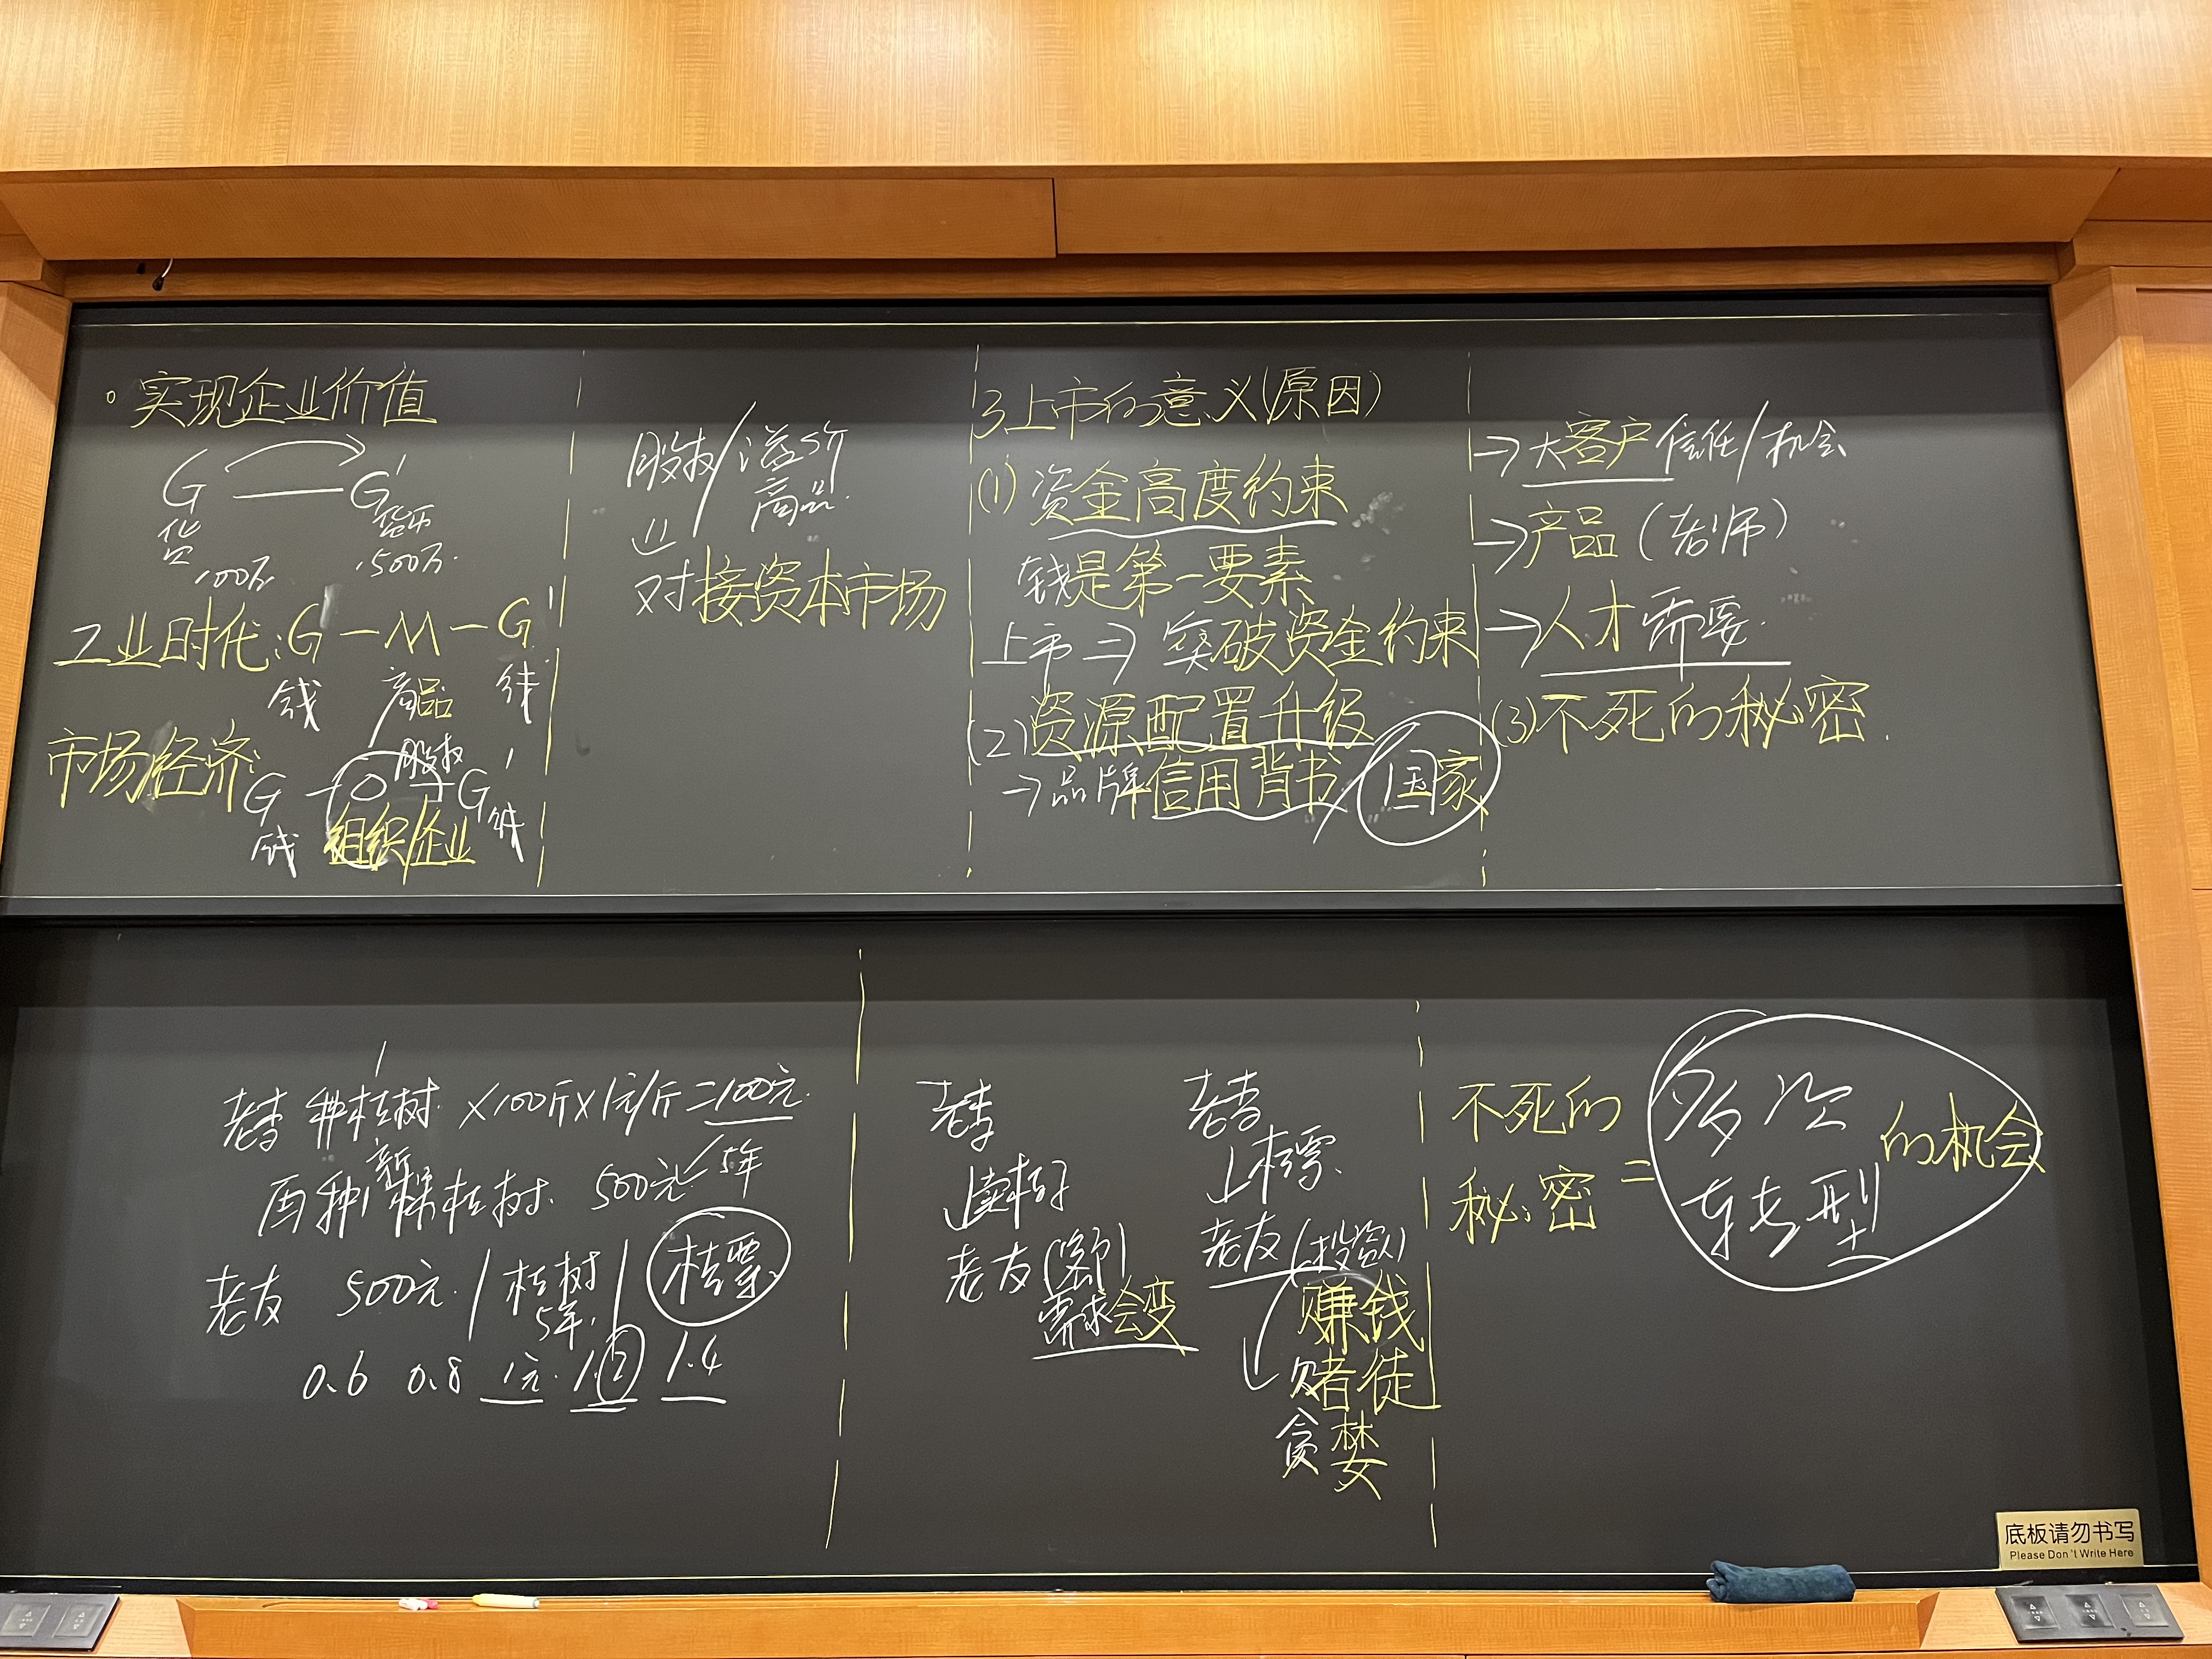 实现企业价值
G — G'
货币
100万
500万
工业时代: G — M — G'
钱 商品 钱
市场经济: G — O — G'
股权
钱 组织/企业 钱
股权/溢价
商品
对接资本市场
3上市的意义(原因)
(1) 资金高度约束
钱是第一要素
上市 => 突破资金约束
(2) 资源配置升级
→品牌信用背书 国家
→大客户信任/机会
→产品
→人才需要
(3)不死的秘密
老李 种桔树 ×100斤×1元/斤=100元
再种 新 桔树 500元 5年
老友 500元 / 桔树 / 桔票
5年
0.6 0.8 1元 1.2 1.4
老李
老友(客户)
需求会变
老李
↓桔票
老友(投资人)
赚钱
赌徒
贪婪
不死的
秘密
=
多次
转型
的机会
底板请勿书写
Please Don't Write Here